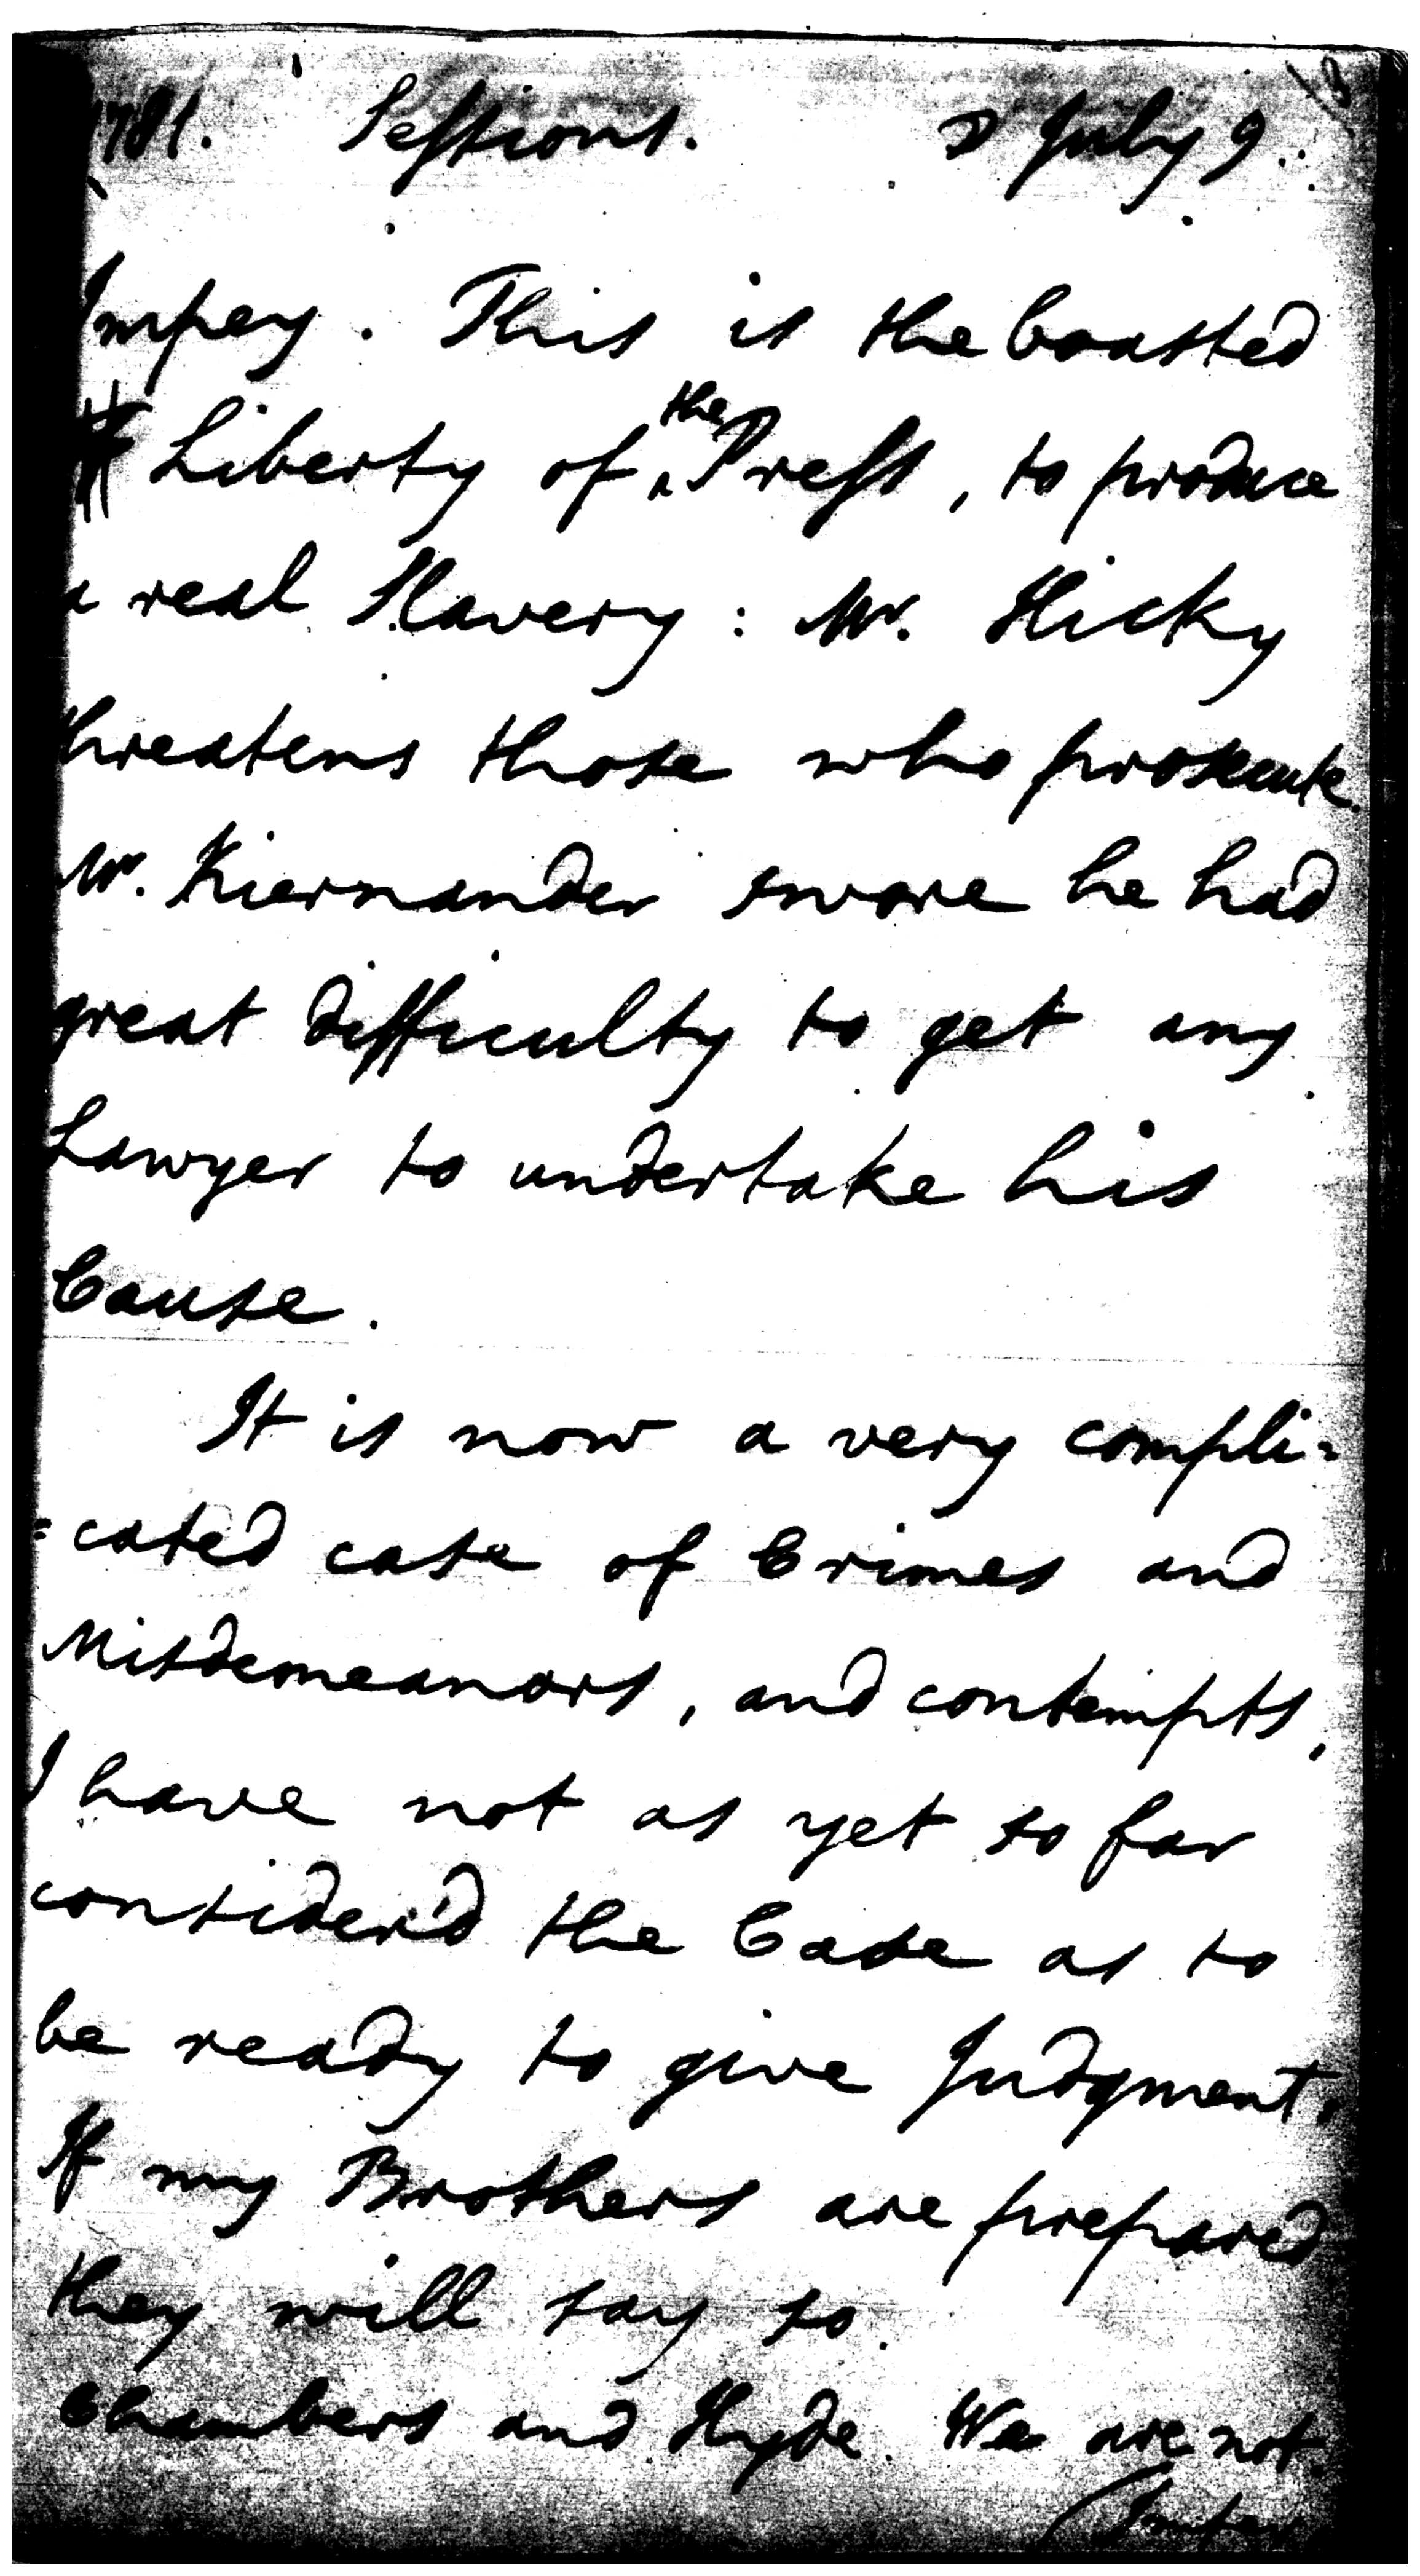 1781. Sessions. ☽ July 9.
Impey. This is the boasted
Liberty of the Press, to produce
a real Slavery: Mr. Hicky
threatens those who prosecute.
Mr. Kiernander swore he had
great difficulty to get any
Lawyer to undertake his
Cause.
It is now a very compli=
=cated case of Crimes and
Misdemeanors, and contempts,
I have not as yet so far
consider'd the Case as to
be ready to give Judgment.
If my Brothers are prepared
they will say so.
Chambers and Hyde. We are not.
(Impey